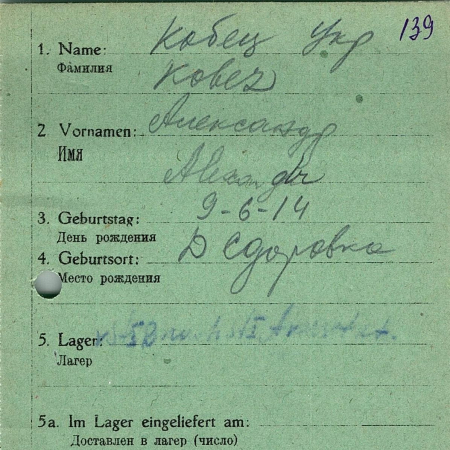 139
1. Name: Кобец Укр
Фамилия
Кобец
2 Vornamen: Александр
Имя
Alexander
3. Geburtstag: 9-6-14
День рождения
4. Geburtsort: Д Сдоровка
Место рождения
5. Lager:
Лагер
5a. Im Lager eingeliefert am:
Доставлен в лагер (число)